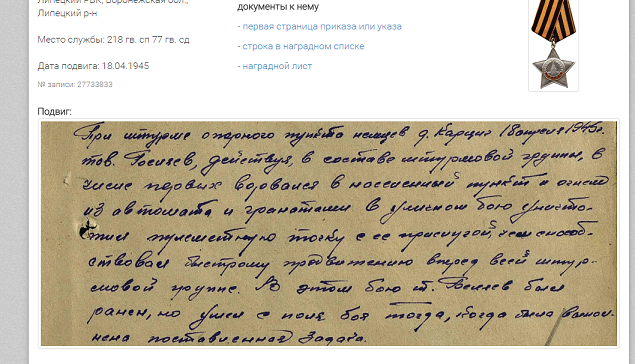 Липецкий РВК, Воронежская обл.,
Липецкий р-н
Место службы: 218 гв. сп 77 гв. сд
Дата подвига: 18.04.1945
№ записи: 27733833
документы к нему
- первая страница приказа или указа
- строка в наградном списке
- наградной лист
Подвиг:
При штурме опорного пункта немцев д. Карциг 18 апреля 1945 г.
тов. действуя, в составе штурмовой группы, в
числе первых ворвался в населенный пункт и огнем
из автомата и гранатами в уличном бою уничто-
жил пулеметную точку с ее прислугой, чем способ-
ствовал быстрому продвижению вперед всей штур-
мовой группе. В этом бою т. был
ранен, но ушел с поля боя тогда, когда была выпол-
нена поставленная задача.